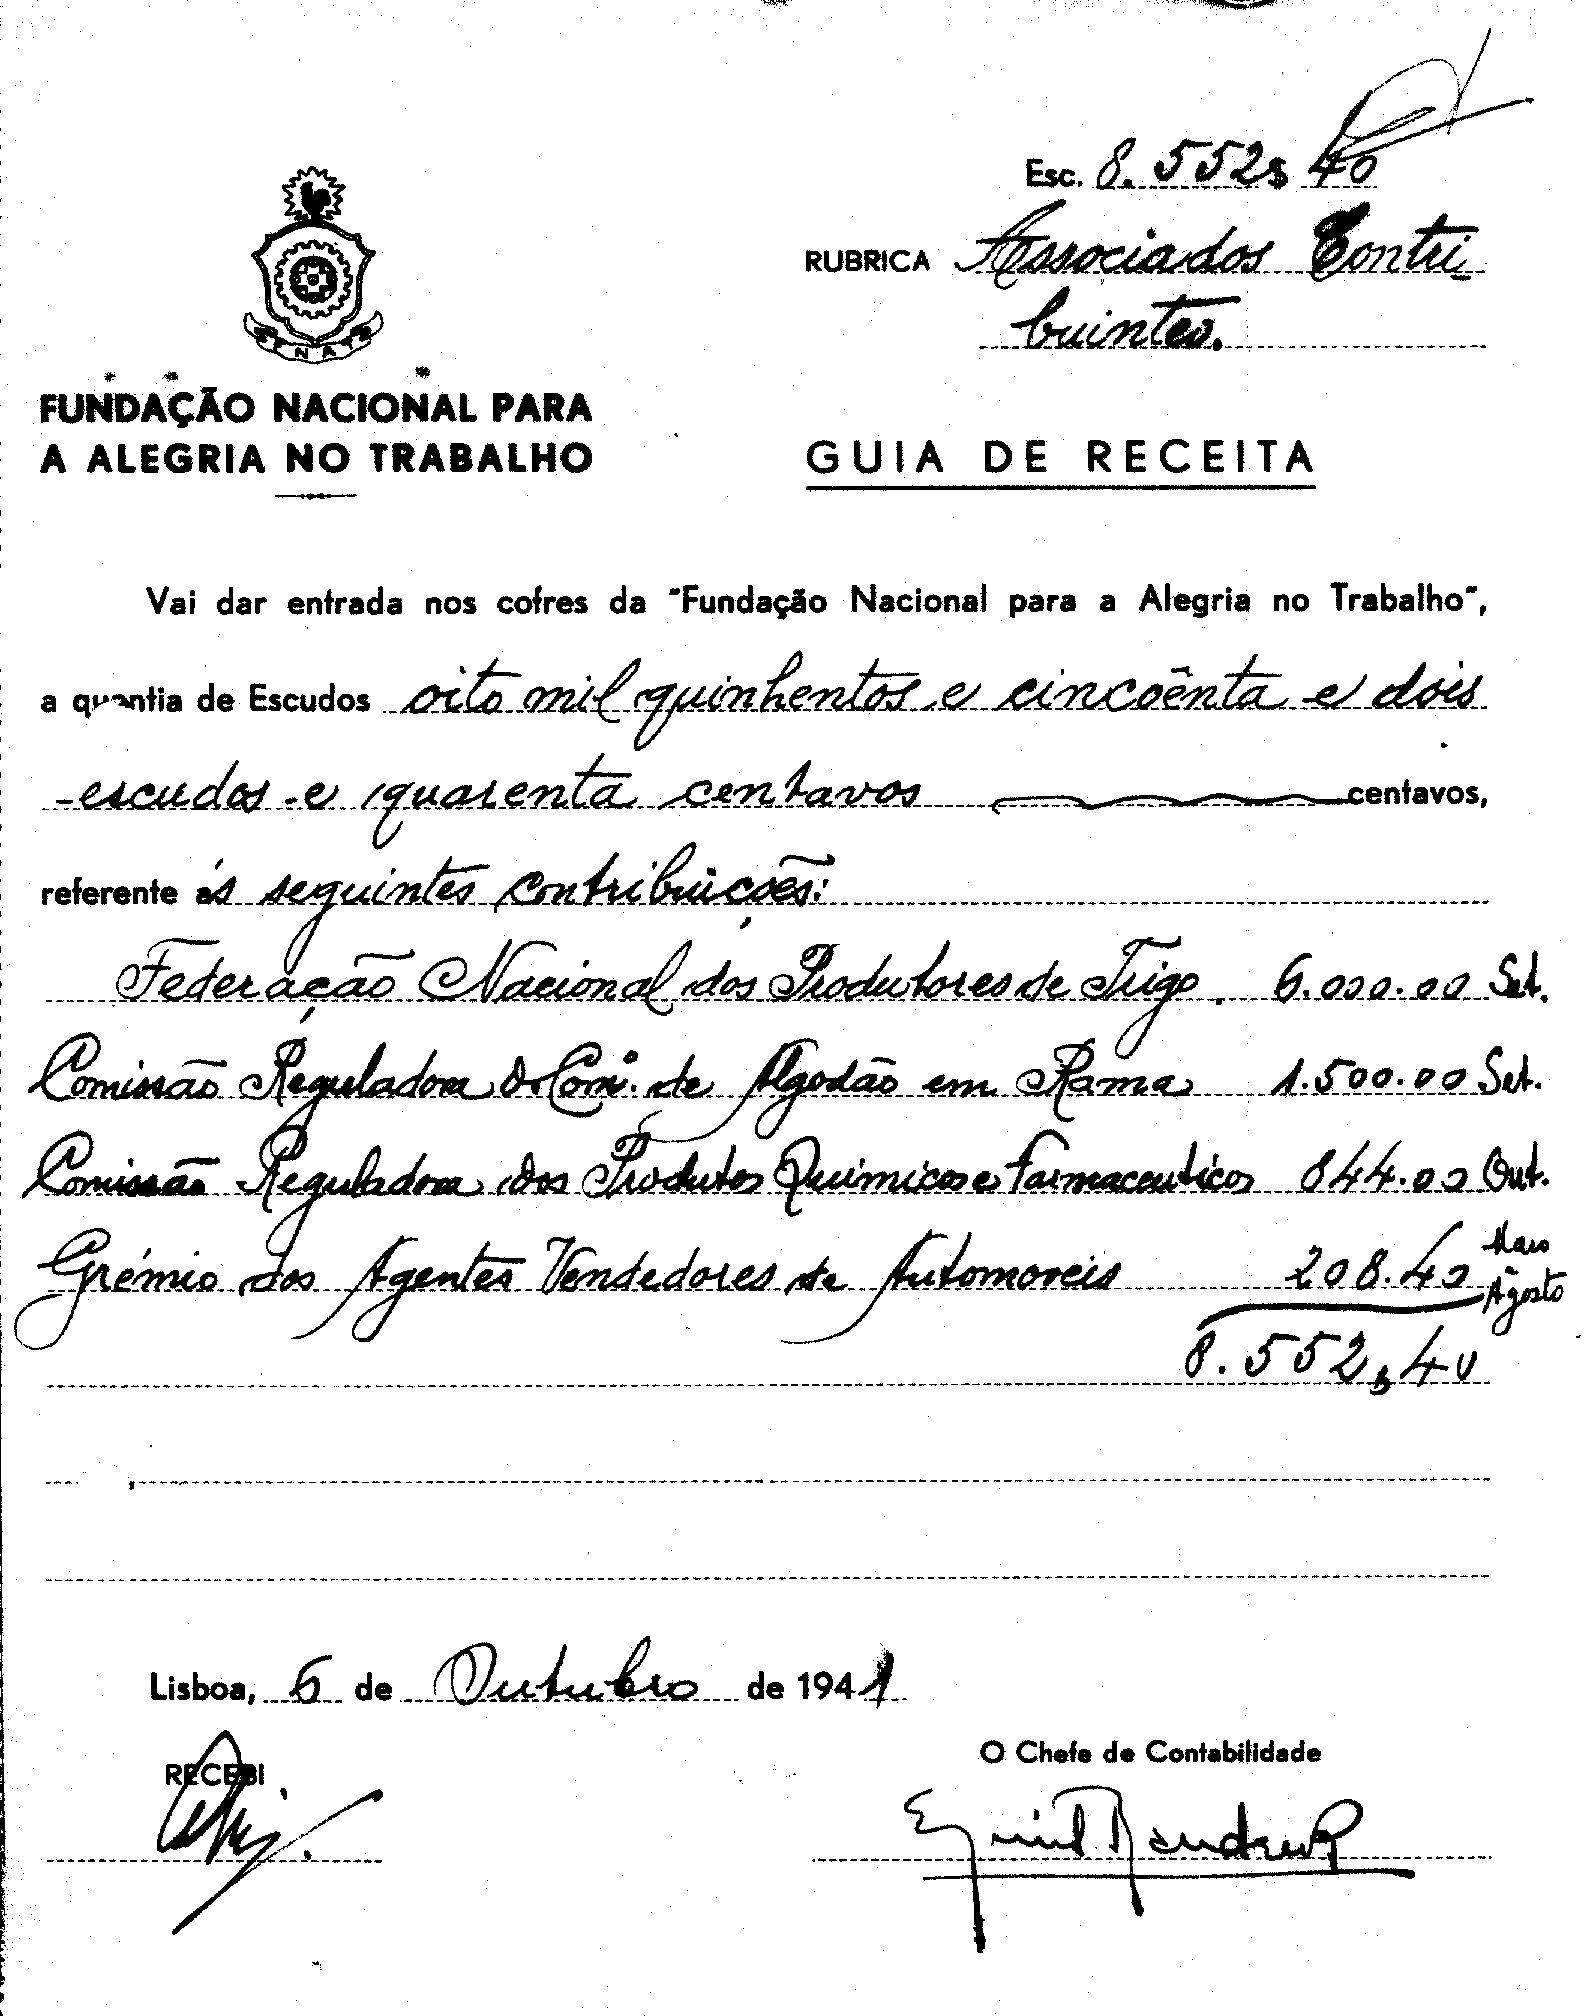 Esc. 8.552$40
RUBRICA Associados Contri
buintes.
F N A T
FUNDAÇÃO NACIONAL PARA
A ALEGRIA NO TRABALHO
GUIA DE RECEITA
Vai dar entrada nos cofres da "Fundação Nacional para a Alegria no Trabalho",
a quantia de Escudos oito mil quinhentos e cincoênta e dois
escudos e quarenta centavos centavos,
referente ás seguintes contribuições:
Federação Nacional dos Produtores de Trigo. 6.000.00 Set.
Comissão Reguladora do Com.º de Algodão em Rama 1.500.00 Set.
Comissão Reguladora dos Produtos Químicos e Farmaceuticos 844.00 Out.
Grémio dos Agentes Vendedores de Automoveis 208.40 Maio
a Agosto
8.552,40
Lisboa, 6 de Outubro de 1941
RECEBI
O Chefe de Contabilidade